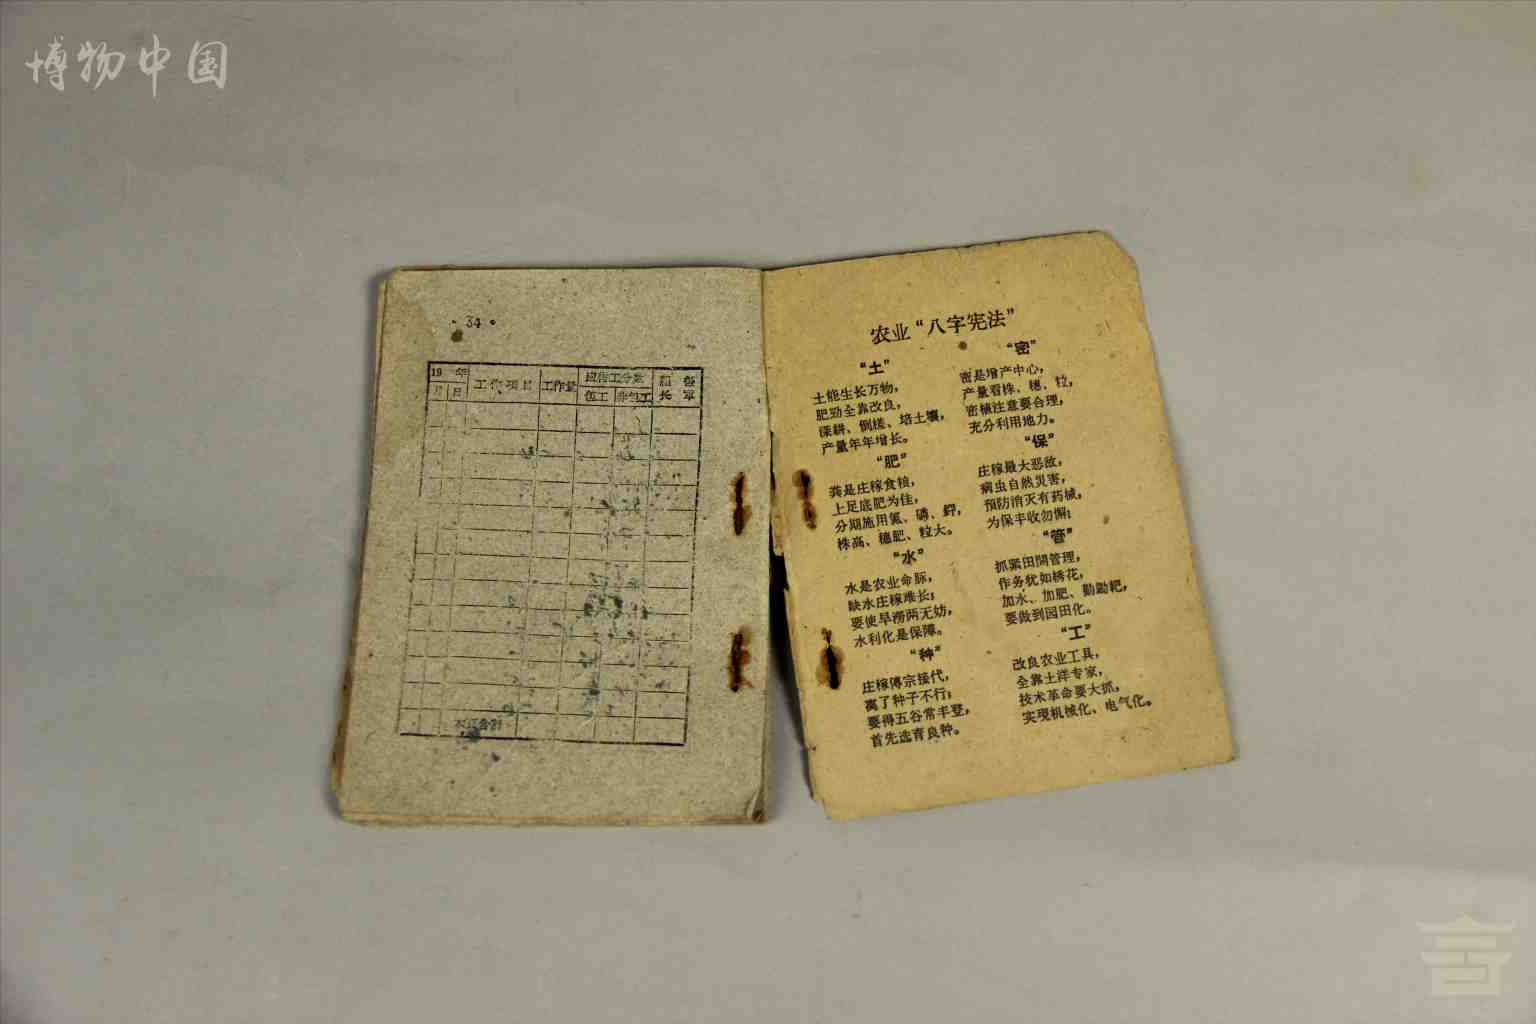 博物中国
· 34 ·
19 年
月 日
工作项目
工作量
应得工分数
包工
非包工
组长
签章
本页合計
农业“八字宪法”
“土”
土能生长万物，
肥劲全靠改良，
深耕、倒槎、培土壤，
产量年年增长。
“肥”
粪是庄稼食粮，
上足底肥为佳，
分期施用氮、磷、鉀，
株高、穗肥、粒大。
“水”
水是农业命脉，
缺水庄稼难长；
要使旱涝两无妨，
水利化是保障。
“种”
庄稼傳宗接代，
离了种子不行；
要得五谷常丰登，
首先选育良种。
“密”
密是增产中心，
产量看株、穗、粒，
密植注意要合理，
充分利用地力。
“保”
庄稼最大恶敌，
病虫自然災害，
預防消灭有药械，
为保丰收勿懈；
“管”
抓紧田間管理，
作务犹如綉花，
加水、加肥、勤鋤耙，
要做到园田化。
“工”
改良农业工具，
全靠土洋专家，
技术革命要大抓，
实現机械化、电气化。